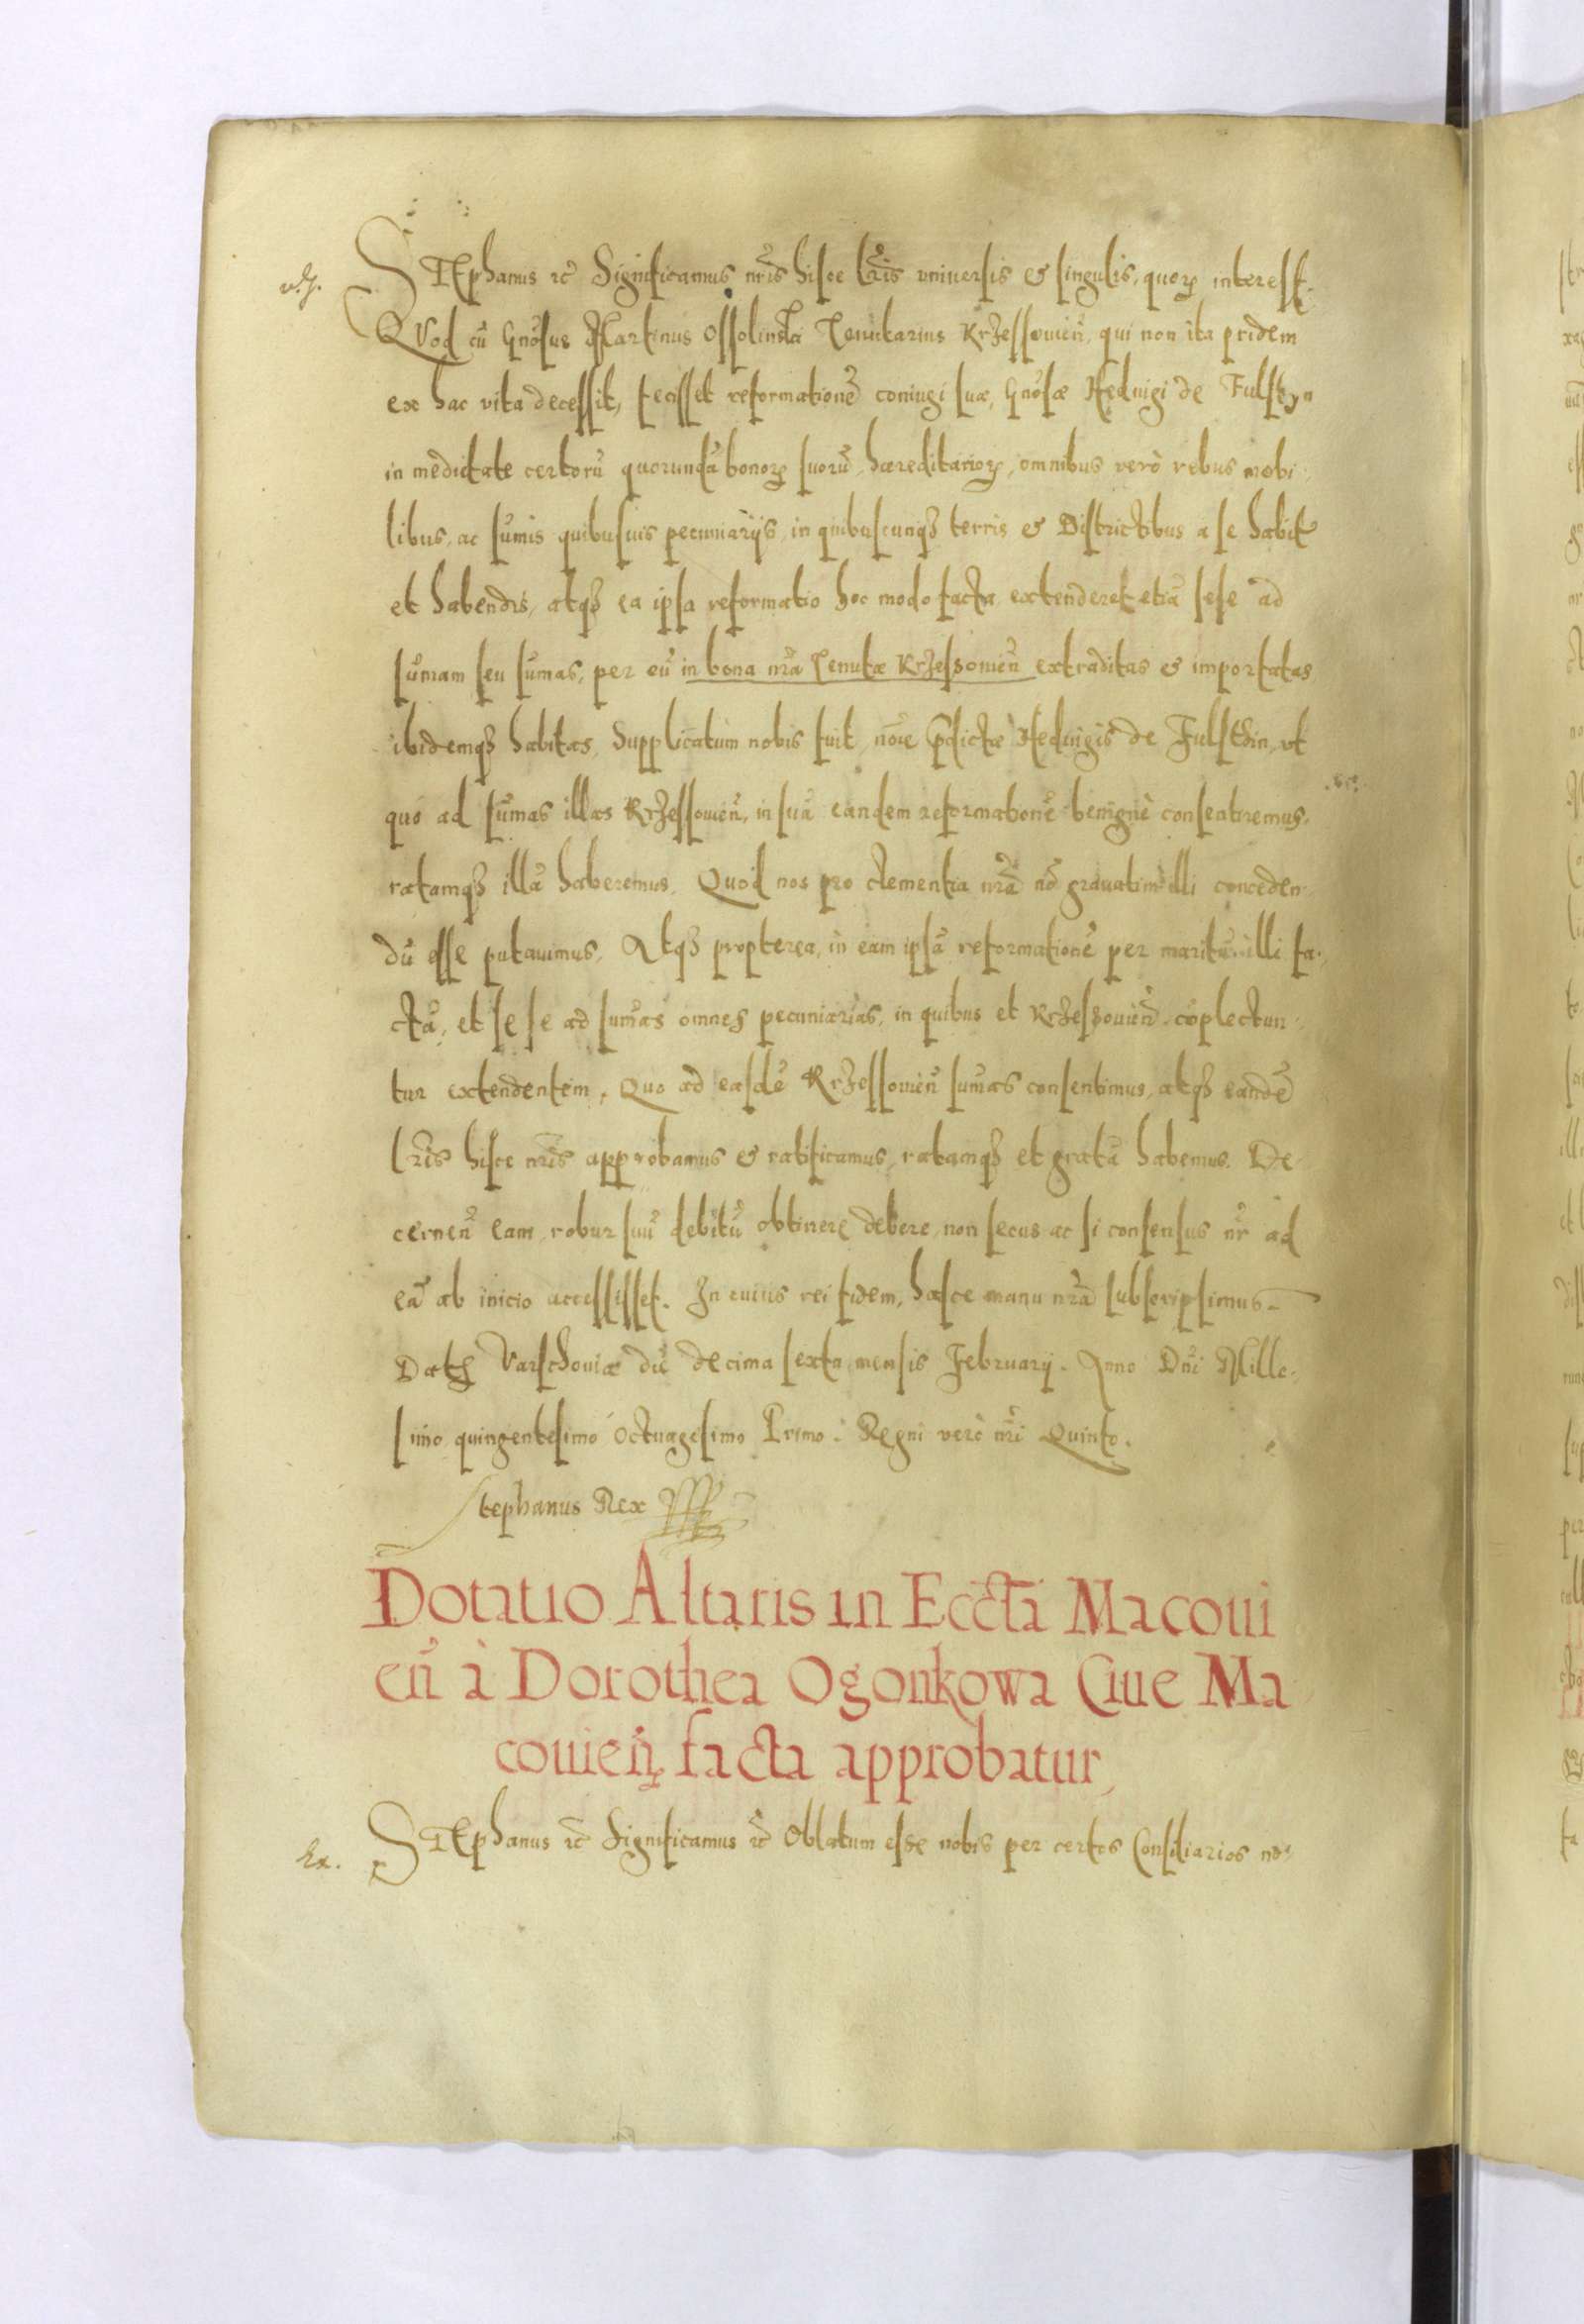 STEphanus etc̃ Significamus nr̃is hisce lr̃is vniuersis & singulis, quorꝫ interest.
QVod cũ Gnõsus Martinus Ossolinsky Tenutarius Krzessouieñ, qui non ita pridem
ex hac vita decessit, fecisset reformationẽ coniugi suæ, Gnõsæ Heduigi de Fulstyn
in medietate certorũ quorundã bonorꝫ suorũ hæreditariorꝫ, omnibus verò rebus mobi
libus, ac sum̃is quibusuis pecuniarijs, in quibuscunqꝫ terris & Districtibus a se habit
et habendis, atqꝫ ea ipsa reformatio hoc modo facta extenderet etiã sese ad
sum̃am seu sum̃as, per eũ in bona nr̃a Tenutæ Krzeszouieñ extraditas & importatas
ibidemqꝫ habitas, Supplicatum nobis fuit, noĩe p̃dictæ Heduigis de Fulsthin, vt
quo ad sum̃as illas Krzessouieñ, in suã eandem reformationẽ benignè consentiremus,
ratamqꝫ illã haberemus. Quod nos pro clementia nr̃a nõ grauatim illi conceden
dũ esse putauimus. Atqꝫ propterea, in eam ipsã reformationẽ per maritũ illi fa
ctã, et sese ad sum̃as omnes pecuniarias, in quibus et Krzeszouieñ cõplectun
tur extendentem, Quo ad easdẽ Krzessouieñ sum̃as consentimus, atqꝫ eandẽ
lr̃is hisce nr̃is approbamus & ratificamus, ratamqꝫ et gratã habemus. De
cerneñ eam robur suũ debitũ obtinere debere, non secus ac si consensus nr̃ ad
eã ab inicio accessisset. In cuius rei fidem, hasce manu nr̃a subscripsimus.
Dať Varschouiæ diẽ decima sexta mensis Februarij. Anno Dñi Mille
simo quingentesimo Octuagesimo Primo. Regni verò nr̃i Quinto.
Stephanus Rex
Dotatio Altaris in Eccťa Macoui
eñ à Dorothea Ogonkowa Ciue Ma
couieñ facta approbatur,
STEphanus etc̃ Significamus etc̃ Oblatum esse nobis per certos Consiliarios no